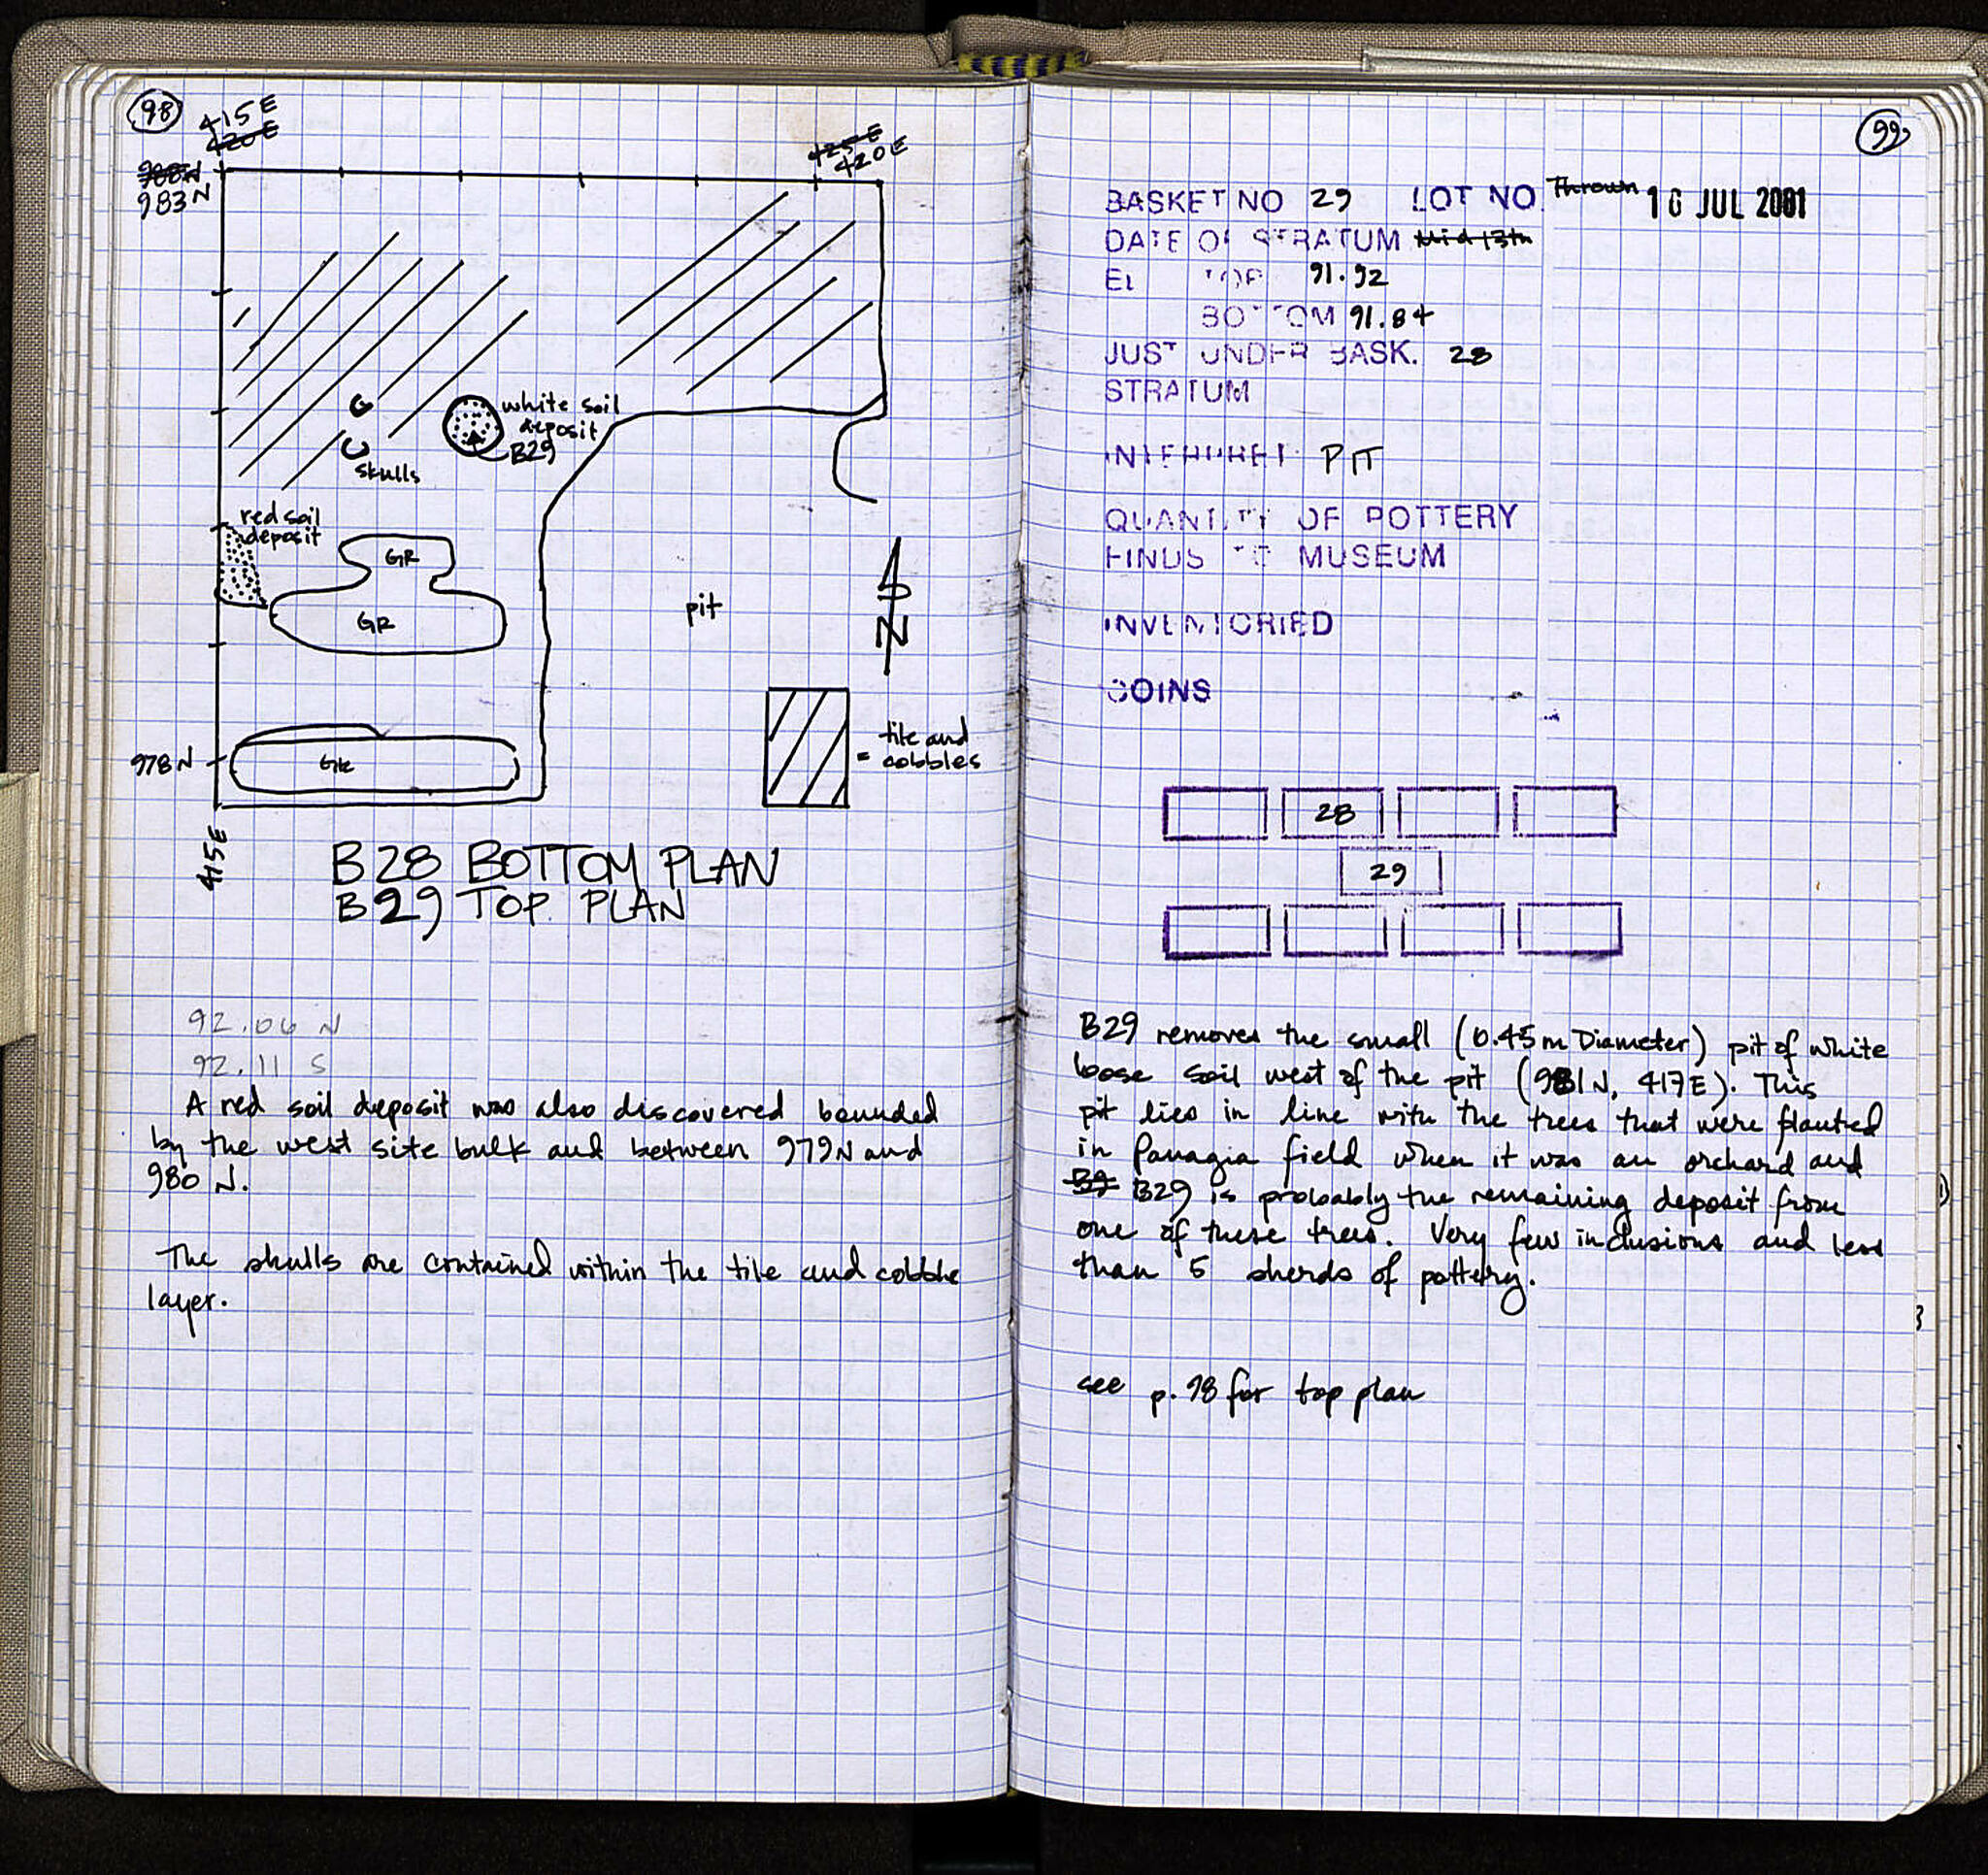 98
415E
420E
425E
420E
988N
983N
white soil
deposit
B29
skulls
red soil
deposit
GR
GR
pit
N
tile and
= cobbles
978N
GR
415E
B28 BOTTOM PLAN
B29 TOP PLAN
92.06 N
92.11 S
A red soil deposit was also discovered bounded
by the west site bulk and between 979N and
980 N.
The skulls are contained within the tile and cobble
layer.
99
BASKET NO 29 LOT NO. Thrown 16 JUL 2001
DATE OF STRATUM Mid 13th
EL TOP 91.92
BOTTOM 91.84
JUST UNDER BASK. 28
STRATUM
INTERPRET PIT
QUANTITY OF POTTERY
FINDS TO MUSEUM
INVENTORIED
COINS
28
29
B29 removes the small (0.45m Diameter) pit of white
loose soil west of the pit (981N, 417E). This
pit lies in line with the trees that were planted
in Panagia field when it was an orchard and
B9 B29 is probably the remaining deposit from
one of these trees. Very few inclusions and less
than 5 sherds of pottery.
see p. 98 for top plan